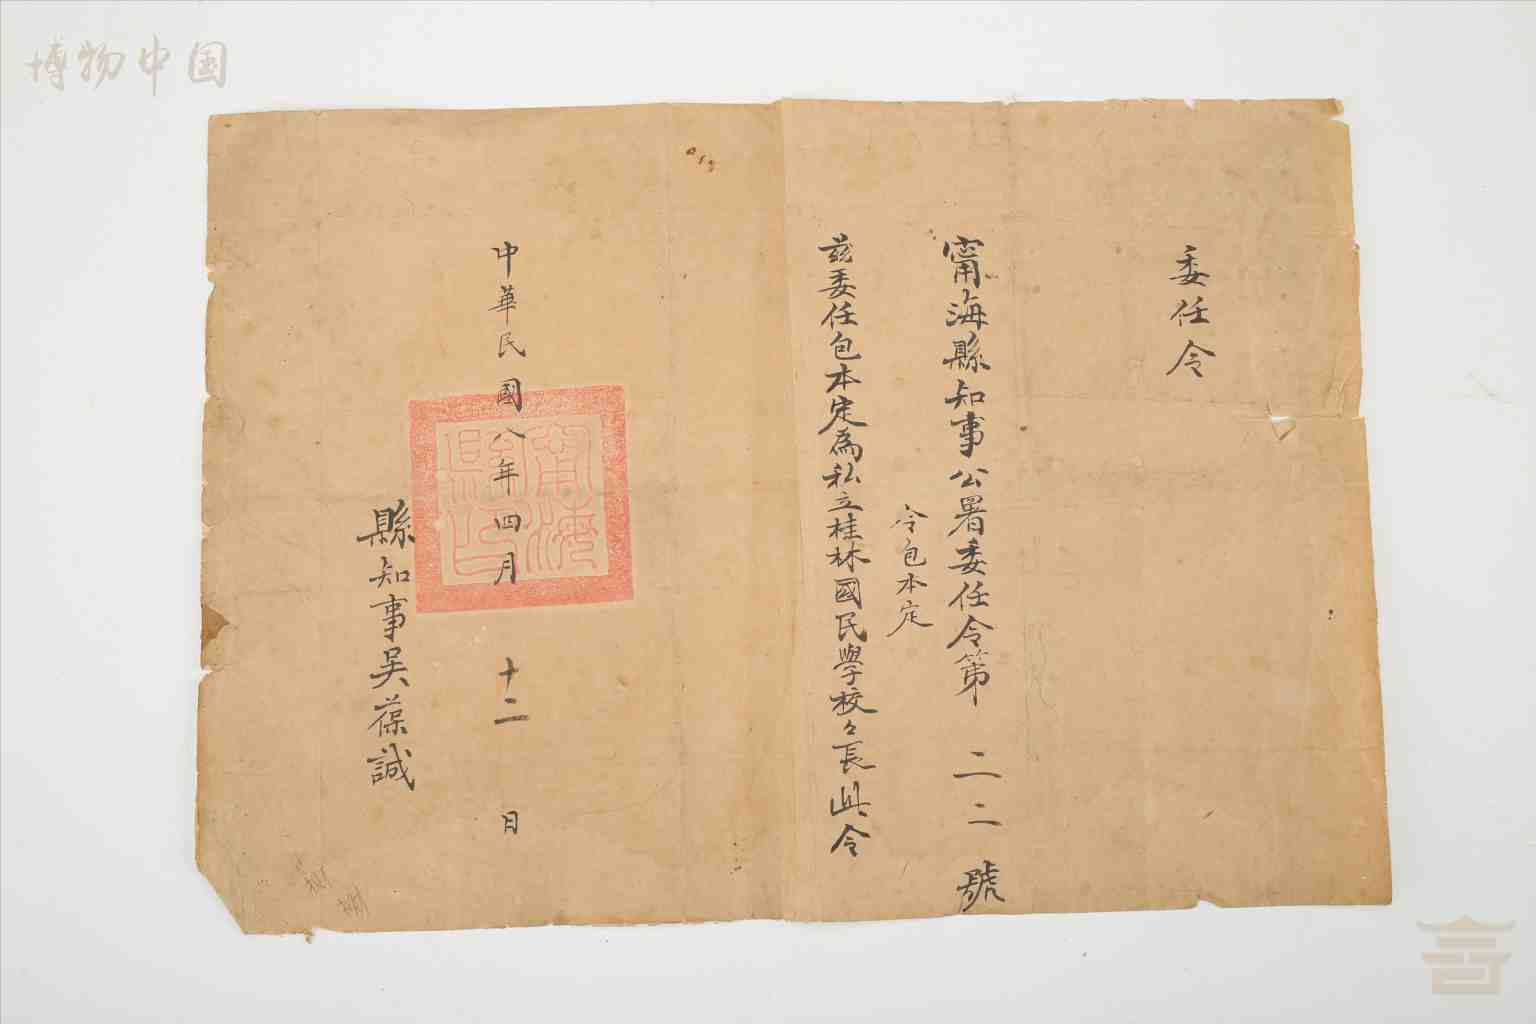 博物中国
委任令
甯海縣知事公署委任令第二二號
令包本定
茲委任包本定為私立桂林國民學校々長此令
中華民國八年四月十二日
縣知事吳葆諴
甯海縣印